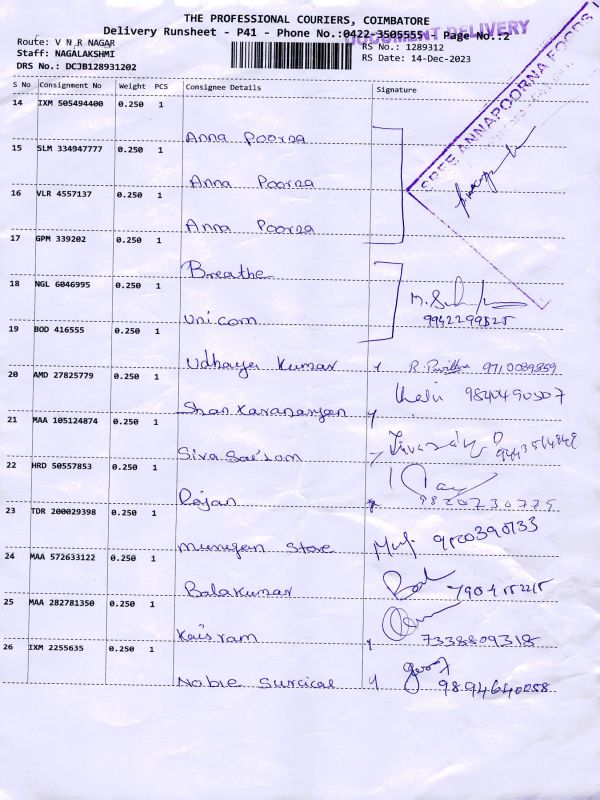 THE PROFESSIONAL COURIERS, COIMBATORE
Delivery Runsheet - P41 - Phone No.:0422-3505555 - Page No.:2
DOCUMENT DELIVERY
Route: V N R NAGAR
RS No.: 1289312
Staff: NAGALAKSHMI
RS Date: 14-Dec-2023
DRS No.: DCJB128931202
SREE ANNAPOORNA FOODS
S No Consignment No Weight PCS Consignee Details Signature
14 IXM 505494400 0.250 1
Anna Poorna
15 SLM 334947777 0.250 1
Anna Poorna
16 VLR 4557137 0.250 1
Anna Poorna
17 GPM 339202 0.250 1
Breathe
18 NGL 6046995 0.250 1
Unicom
19 BOD 416555 0.250 1
Udhaya Kumar
20 AMD 27825779 0.250 1
Shankaranarayan
21 MAA 105124874 0.250 1
Siva Sailam
22 HRD 50557853 0.250 1
Rajan
23 TDR 200029398 0.250 1
Murugan Store
24 MAA 572633122 0.250 1
Balakumar
25 MAA 282781350 0.250 1
Kailsram 7338809318
26 IXM 2255635 0.250 1
Noble Surgical 9894640058